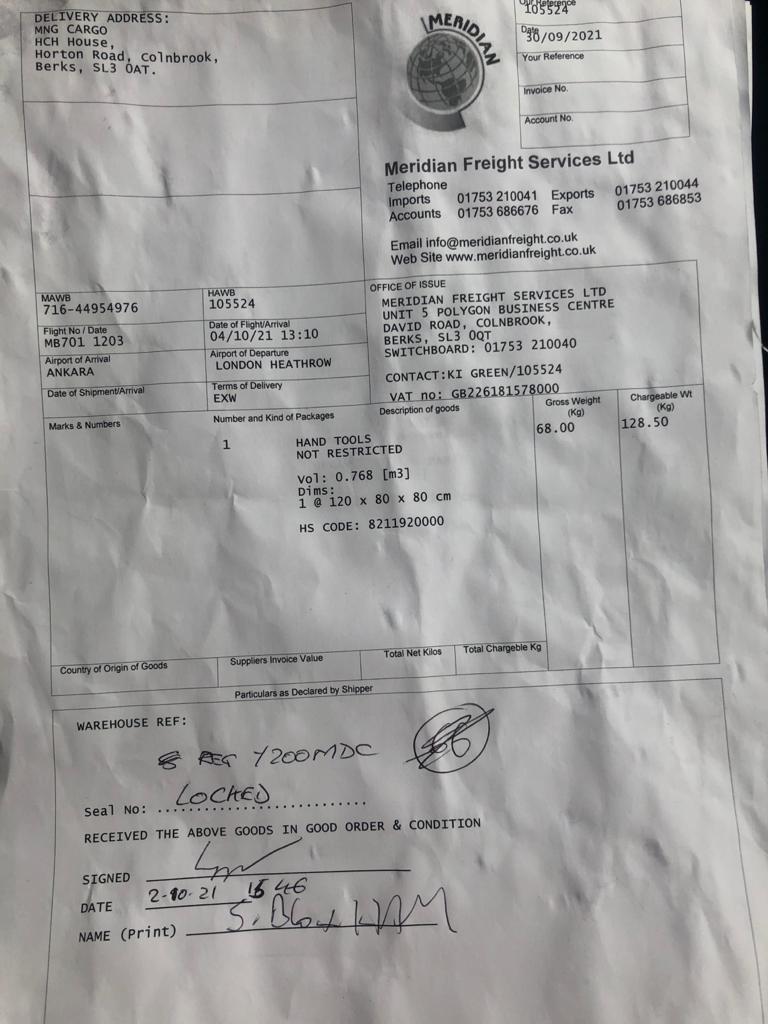 DELIVERY ADDRESS:
MNG CARGO
HCH House,
Horton Road, Colnbrook,
Berks, SL3 0AT.
MERIDIAN
Our Reference
105524
Date
30/09/2021
Your Reference
Invoice No.
Account No.
Meridian Freight Services Ltd
Telephone
Imports 01753 210041 Exports 01753 210044
Accounts 01753 686676 Fax 01753 686853
Email info@meridianfreight.co.uk
Web Site www.meridianfreight.co.uk
MAWB
716-44954976
HAWB
105524
Flight No / Date
MB701 1203
Date of Flight/Arrival
04/10/21 13:10
Airport of Arrival
ANKARA
Airport of Departure
LONDON HEATHROW
Date of Shipment/Arrival
Terms of Delivery
EXW
OFFICE OF ISSUE
MERIDIAN FREIGHT SERVICES LTD
UNIT 5 POLYGON BUSINESS CENTRE
DAVID ROAD, COLNBROOK,
BERKS, SL3 0QT
SWITCHBOARD: 01753 210040
CONTACT:KI GREEN/105524
VAT no: GB226181578000
Marks & Numbers
Number and Kind of Packages
Description of goods
Gross Weight
(Kg)
Chargeable Wt
(Kg)
1
HAND TOOLS
NOT RESTRICTED
68.00
128.50
Vol: 0.768 [m3]
Dims:
1 @ 120 x 80 x 80 cm
HS CODE: 8211920000
Country of Origin of Goods
Suppliers Invoice Value
Total Net Kilos
Total Chargeble Kg
Particulars as Declared by Shipper
WAREHOUSE REF:
REG Y200MDC
Seal No: LOCKED
RECEIVED THE ABOVE GOODS IN GOOD ORDER & CONDITION
SIGNED
DATE 2-10-21 15 46
NAME (Print) S.